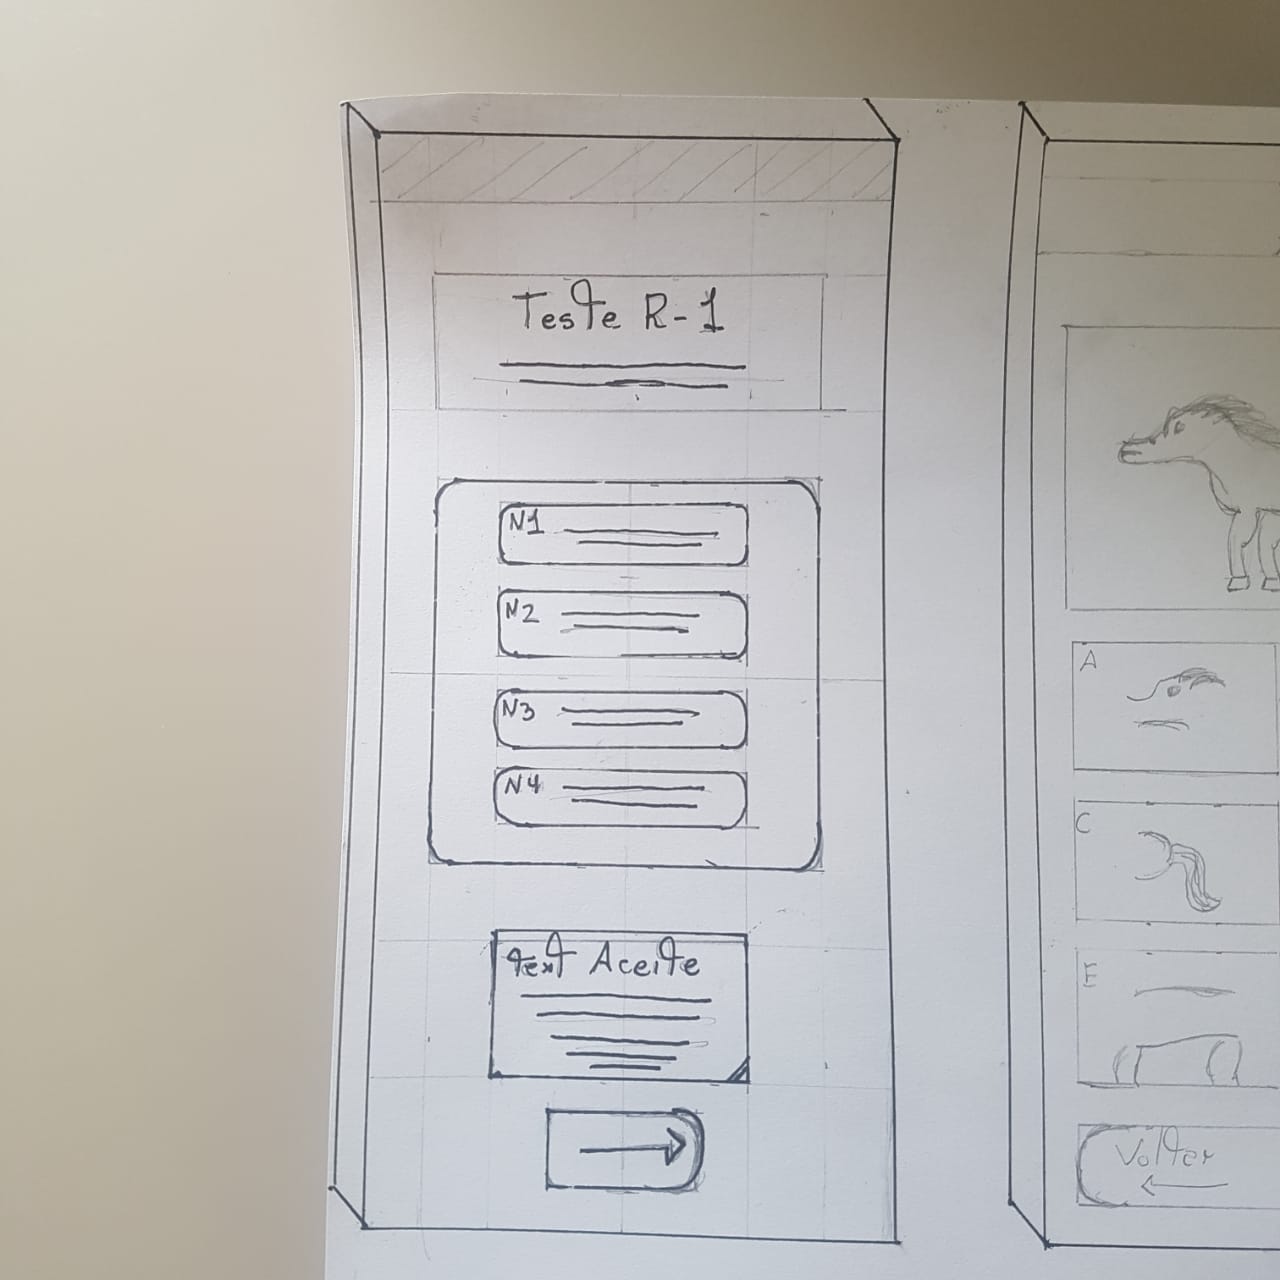 Teste R-1
N1
N2
N3
N4
text Aceite
A
C
E
Volter